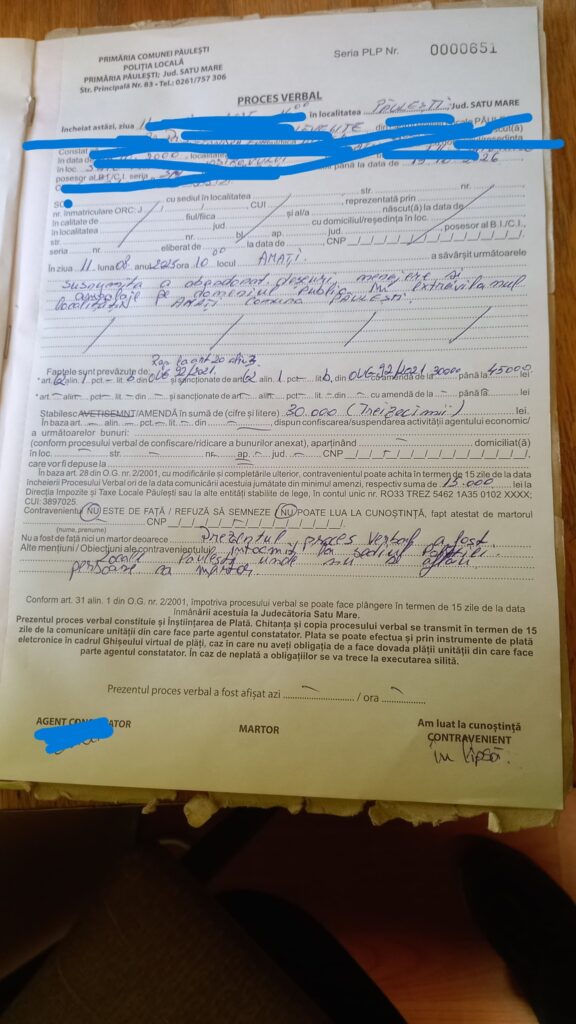 PRIMĂRIA COMUNEI PĂULEȘTI
POLIȚIA LOCALĂ
PRIMĂRIA PĂULEȘTI; Jud. SATU MARE
Str. Principală Nr. 83 - Tel.: 0261/757 306
Seria PLP Nr. 0000651
PROCES VERBAL
Încheiat astăzi, ziua 11 în localitatea PĂULEȘTI, Jud. SATU MARE
Constat
în data de 2000, localitatea
în loc.
posesor al B.I./C.I. seria până la data de 2026
SC cu sediul în localitatea str. nr.
nr. înmatriculare ORC: J / / , CUI , reprezentată prin
în calitate de fiul/fiica și al/a născut(ă) la data de
în localitatea jud. cu domiciliul/reședința în loc.
str. nr. bl. ap. jud. , posesor al B.I./C.I.,
seria nr. eliberat de la data de , CNP
În ziua 11 luna 08 anul 2025 ora 10 00 locul AMAȚI a săvârșit următoarele
susnumita a abandonat deșeuri menajere și
ambalaje pe domeniul public în extravilanul
localității AMAȚI comuna PĂULEȘTI.
Rap. la art 20 alin 3
Faptele sunt prevăzute de OUG 92/2021.
* art. 62 alin. 1 pct. – lit. b din și sancționate de art. 62 alin. 1 pct. – lit. b, din OUG 92/2021 cu amendă de la 30000 până la 45000 lei
* art. – alin. – pct. – lit. – din – și sancționate de art. – alin. – pct. – lit. – din – cu amendă de la – până la – lei
Stabilesc AVETISEMNT/AMENDĂ în sumă de (cifre și litere) 30.000 (Treizecimii) lei.
În baza art. – alin. – pct. – lit. – din – dispun confiscarea/suspendarea activității agentului economic/
a următoarelor bunuri:
(conform procesului verbal de confiscare/ridicare a bunurilor anexat), aparținând – domiciliat(ă)
în loc. – str. – nr. – ap. – jud. – CNP
care vor fi depuse la
În baza art. 28 din O.G. nr. 2/2001, cu modificările și completările ulterior, contravenientul poate achita în termen de 15 zile de la data
încheierii Procesului Verbal ori de la data comunicării acestuia jumătate din minimul amenzi, respectiv suma de 15.000 lei la
Direcția Impozite și Taxe Locale Păulești sau la alte entități stabilite de lege, în contul unic nr. RO33 TREZ 5462 1A35 0102 XXXX;
CUI: 3897025.
Contravenientul NU ESTE DE FAȚĂ / REFUZĂ SĂ SEMNEZE NU POATE LUA LA CUNOȘTINȚĂ, fapt atestat de martorul
CNP
(nume, prenume)
Nu a fost de față nici un martor deoarece Prezentul proces verbal a fost
Alte mențiuni / Obiecțiuni ale contravenientului: întocmit la sediul Poliției
Locale Păulești unde nu se aflau
persoane ca martor.
Conform art. 31 alin. 1 din O.G. nr. 2/2001, împotriva procesului verbal se poate face plângere în termen de 15 zile de la data
înmânării acestuia la Judecătoria Satu Mare.
Prezentul proces verbal constituie și Înștiințarea de Plată. Chitanța și copia procesului verbal se transmit în termen de 15
zile de la comunicare unității din care face parte agentul constatator. Plata se poate efectua și prin instrumente de plată
eletcronice în cadrul Ghișeului virtual de plăți, caz în care nu aveți obligația de a face dovada plății unității din care face
parte agentul constatator. În caz de neplată a obligațiilor se va trece la executarea silită.
Prezentul proces verbal a fost afișat azi – / ora –
AGENT CONSTATATOR MARTOR Am luat la cunoștință
CONTRAVENIENT
în lipsă.